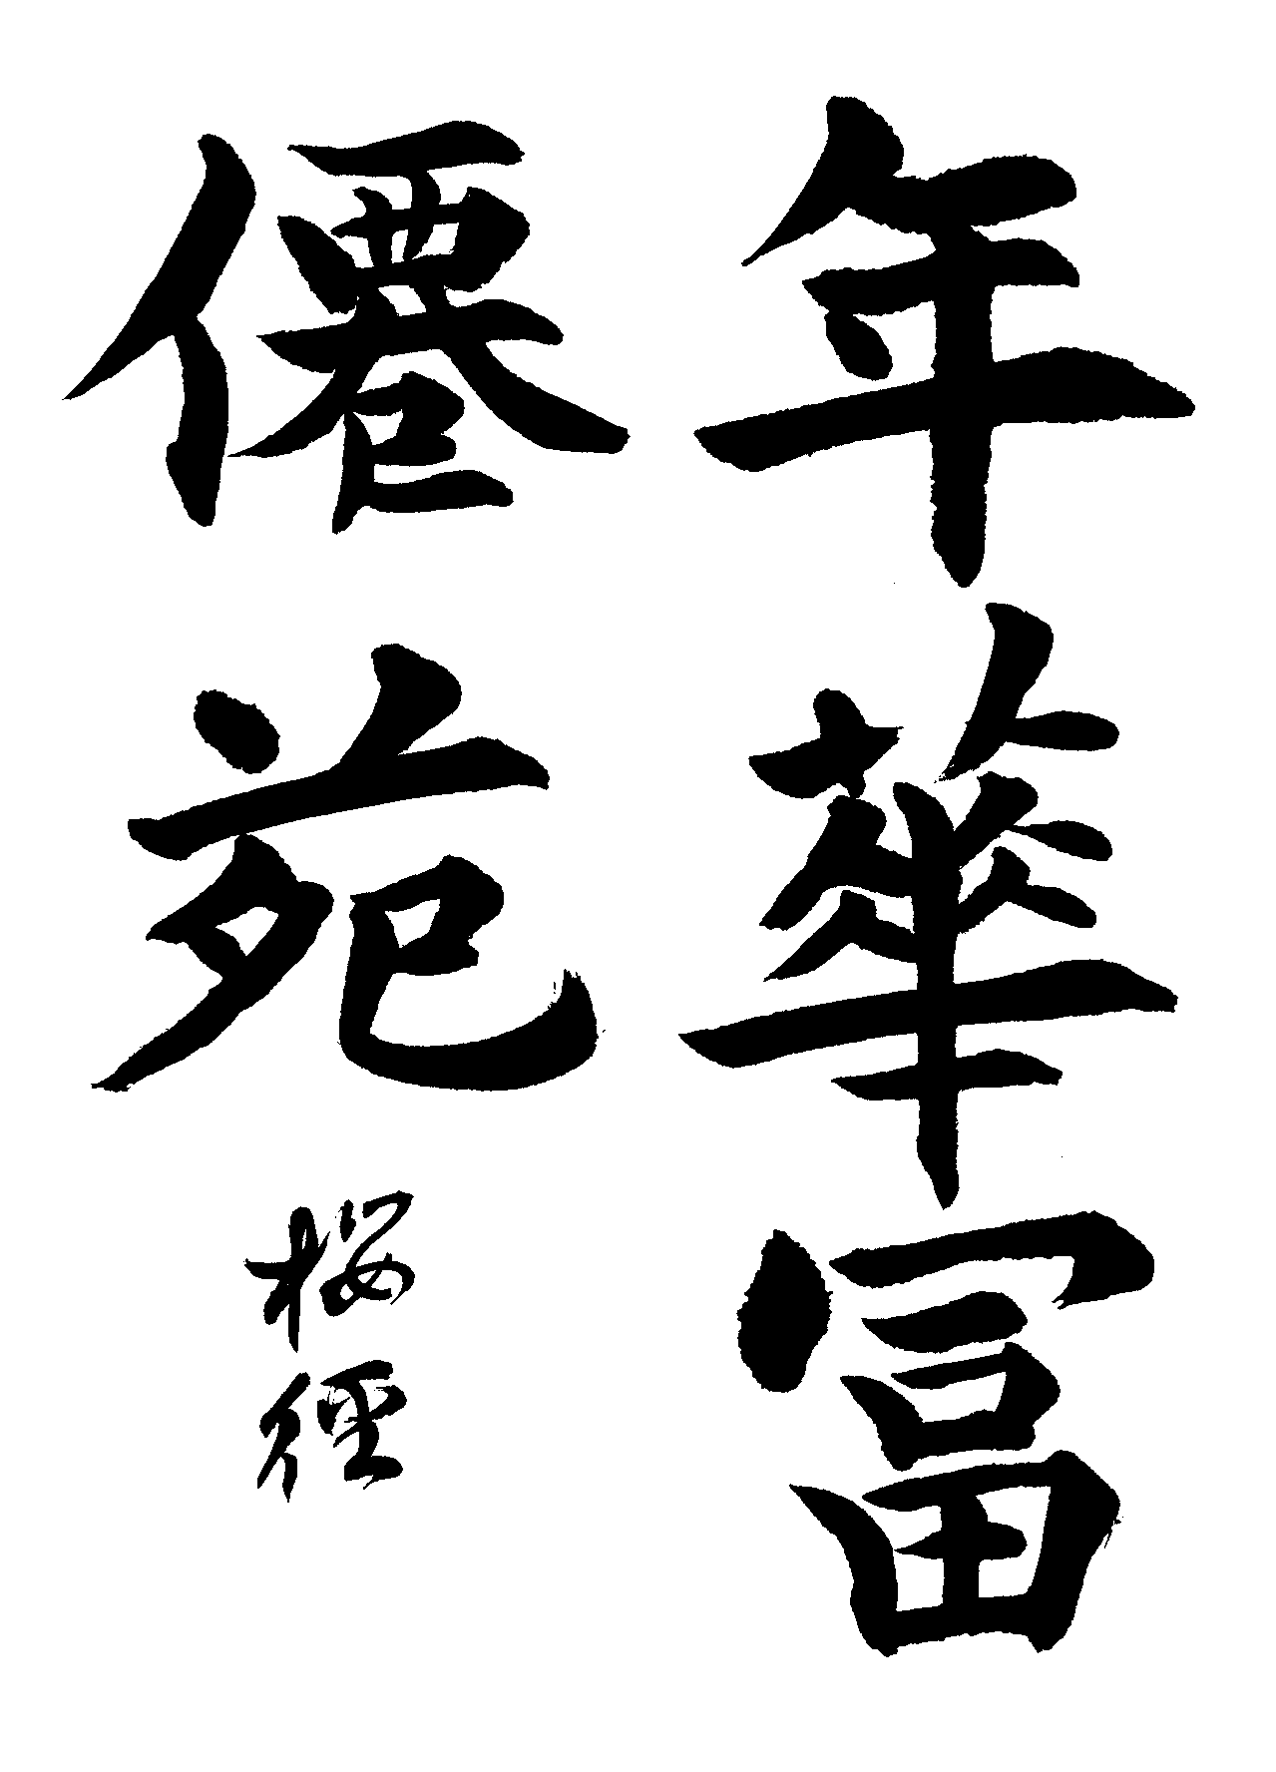 年華冨
僊苑
桜径